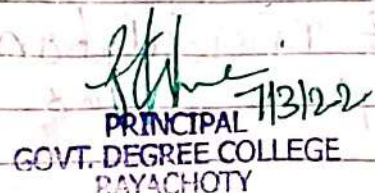 7/3/22
PRINCIPAL
GOVT. DEGREE COLLEGE
RAYACHOTY